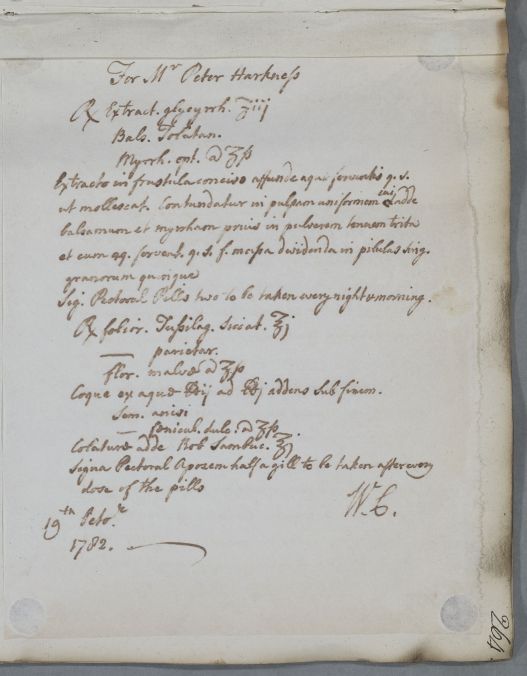 For Mr Peter Harkness
℞ Extract. glycyrrh. ʒiij
Bals. Tolutan.
Myrrh. opt. a ʒſs
Extracto in frustula conciso affunde aquæ ferventis q. s.
ut mollescat. Contundatur in pulpam uniformem cui adde
balsamum et myrrham prius in pulverem tenuem trita
et cum aq. fervent. q. s. f. massa dividenda in pilulas sing.
granorum quinque
Sig. Pectoral Pills two to be taken every night & morning.
℞ folior. Tussilag. siccat. ℥j
— parietar.
flor. malvæ a ℥ſs
Coque ex aquæ ℔ij ad ℔j addens sub finem.
Sem. anisi
— fœnicul. dulc. a ʒſs.
Colaturæ adde Rob Sambuc. ℥j
Signa Pectoral Apozem half a gill to be taken after every
dose of the pills
W. C.
19th
1782.
264.